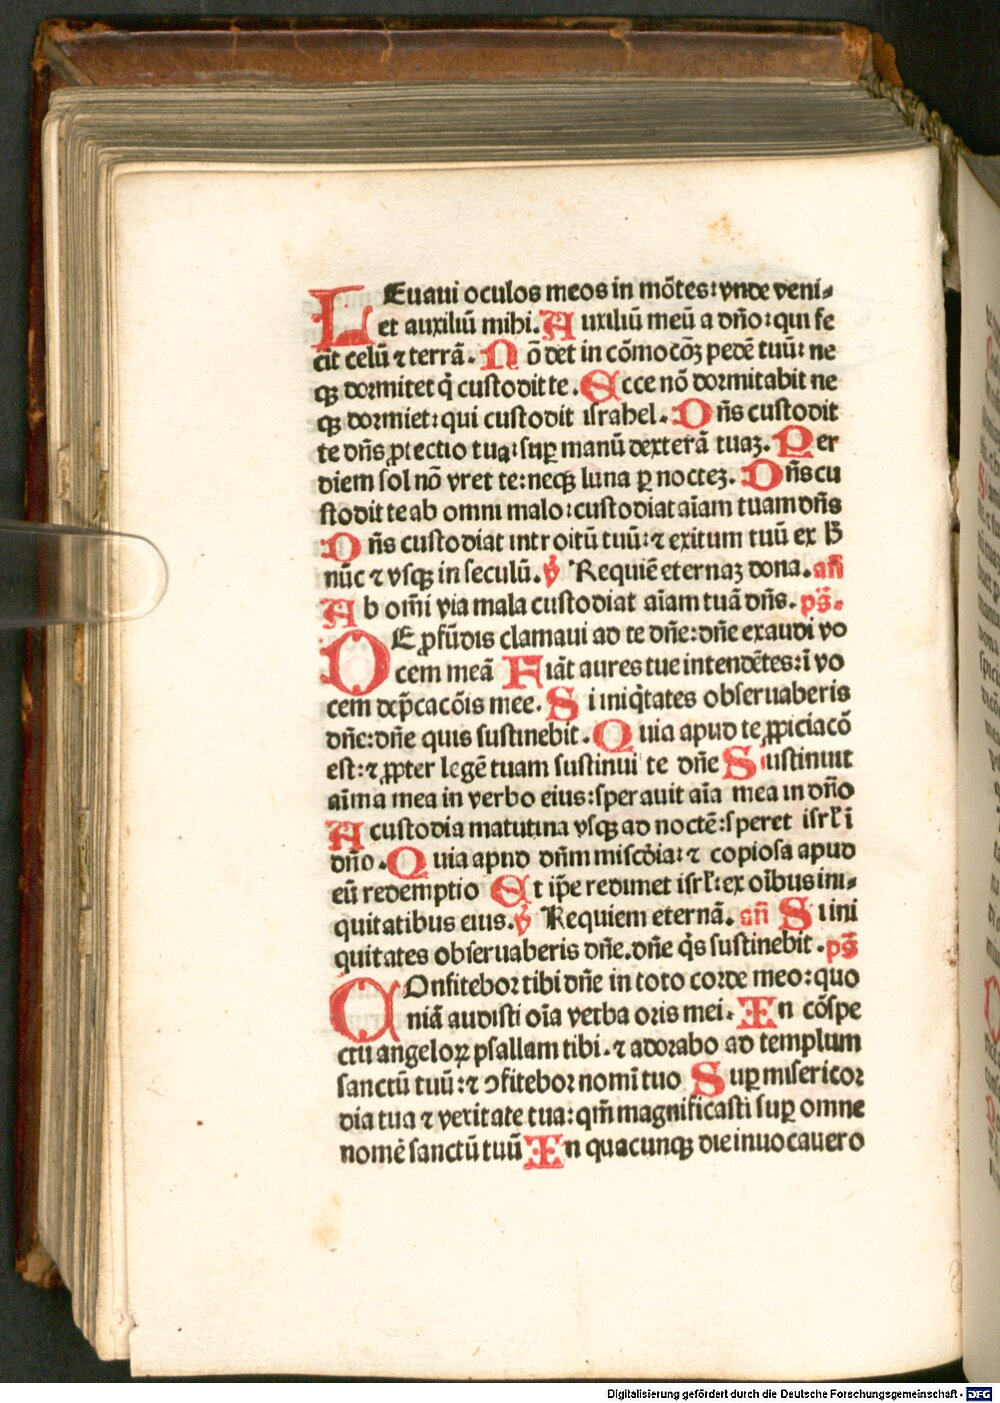 LEuaui oculos meos in mōtes: vnde veni⸗
et auxiliū mihi. Auxiliū meū a dño: qui fe
cit celū ⁊ terrā. Nō det in cōmocōꝫ pedē tuū: ne
qꝫ dormitet q̇ custodit te. Ecce nō dormitabit ne
qꝫ dormiet: qui custodit israhel. Dñs custodit
te dñs ꝓtectio tua: suꝑ manū dexterā tuaꝫ. Per
diem sol nō vret te: neqꝫ luna ꝑ nocteꝫ. Dñs cu
stodit te ab omni malo: custodiat aīam tuam dñs
Dñs custodiat introitū tuū: ⁊ exitum tuū ex h̄
nūc ⁊ vsqꝫ in seculū. v̾ Requiē eternaꝫ dona. añ
Ab om̄i via mala custodiat aīam tuā dñs. ps̄.
DE ꝓfūdis clamaui ad te dñe: dñe exaudi vo
cem meā Fiāt aures tue intendētes: ī vo
cem dep̄cacōis mee. Si iniq̇tates obseruaberis
dñe: dñe quis sustinebit. Quia apud te ꝓpiciacō
est: ⁊ ꝓpter legē tuam sustinui te dñe Sustinuit
aīma mea in verbo eius: sperauit aīa mea in dño
A custodia matutina vsqꝫ ad noctē: speret isrl̄ ī
dño. Quia apud dñm miscd̄ia: ⁊ copiosa apud
eū redemptio Et ip̄e redimet isrl̄: ex oībus ini⸗
quitatibus eius. v̾ Requiem eternā. añ Si ini
quitates obseruaberis dñe. dñe q̇s sustinebit. ps̄
COnfitebor tibi dñe in toto corde meo: quo
niā audisti oīa verba oris mei. In cōspe
ctu angeloꝝ psallam tibi. ⁊ adorabo ad templum
sanctū tuū: ⁊ ꝯfitebor nomī tuo Suꝑ misericor
dia tua ⁊ veritate tua: qm̄ magnificasti suꝑ omne
nomē sanctū tuū In quacunqꝫ die inuocauero
Digitalisierung gefördert durch die Deutsche Forschungsgemeinschaft - DFG